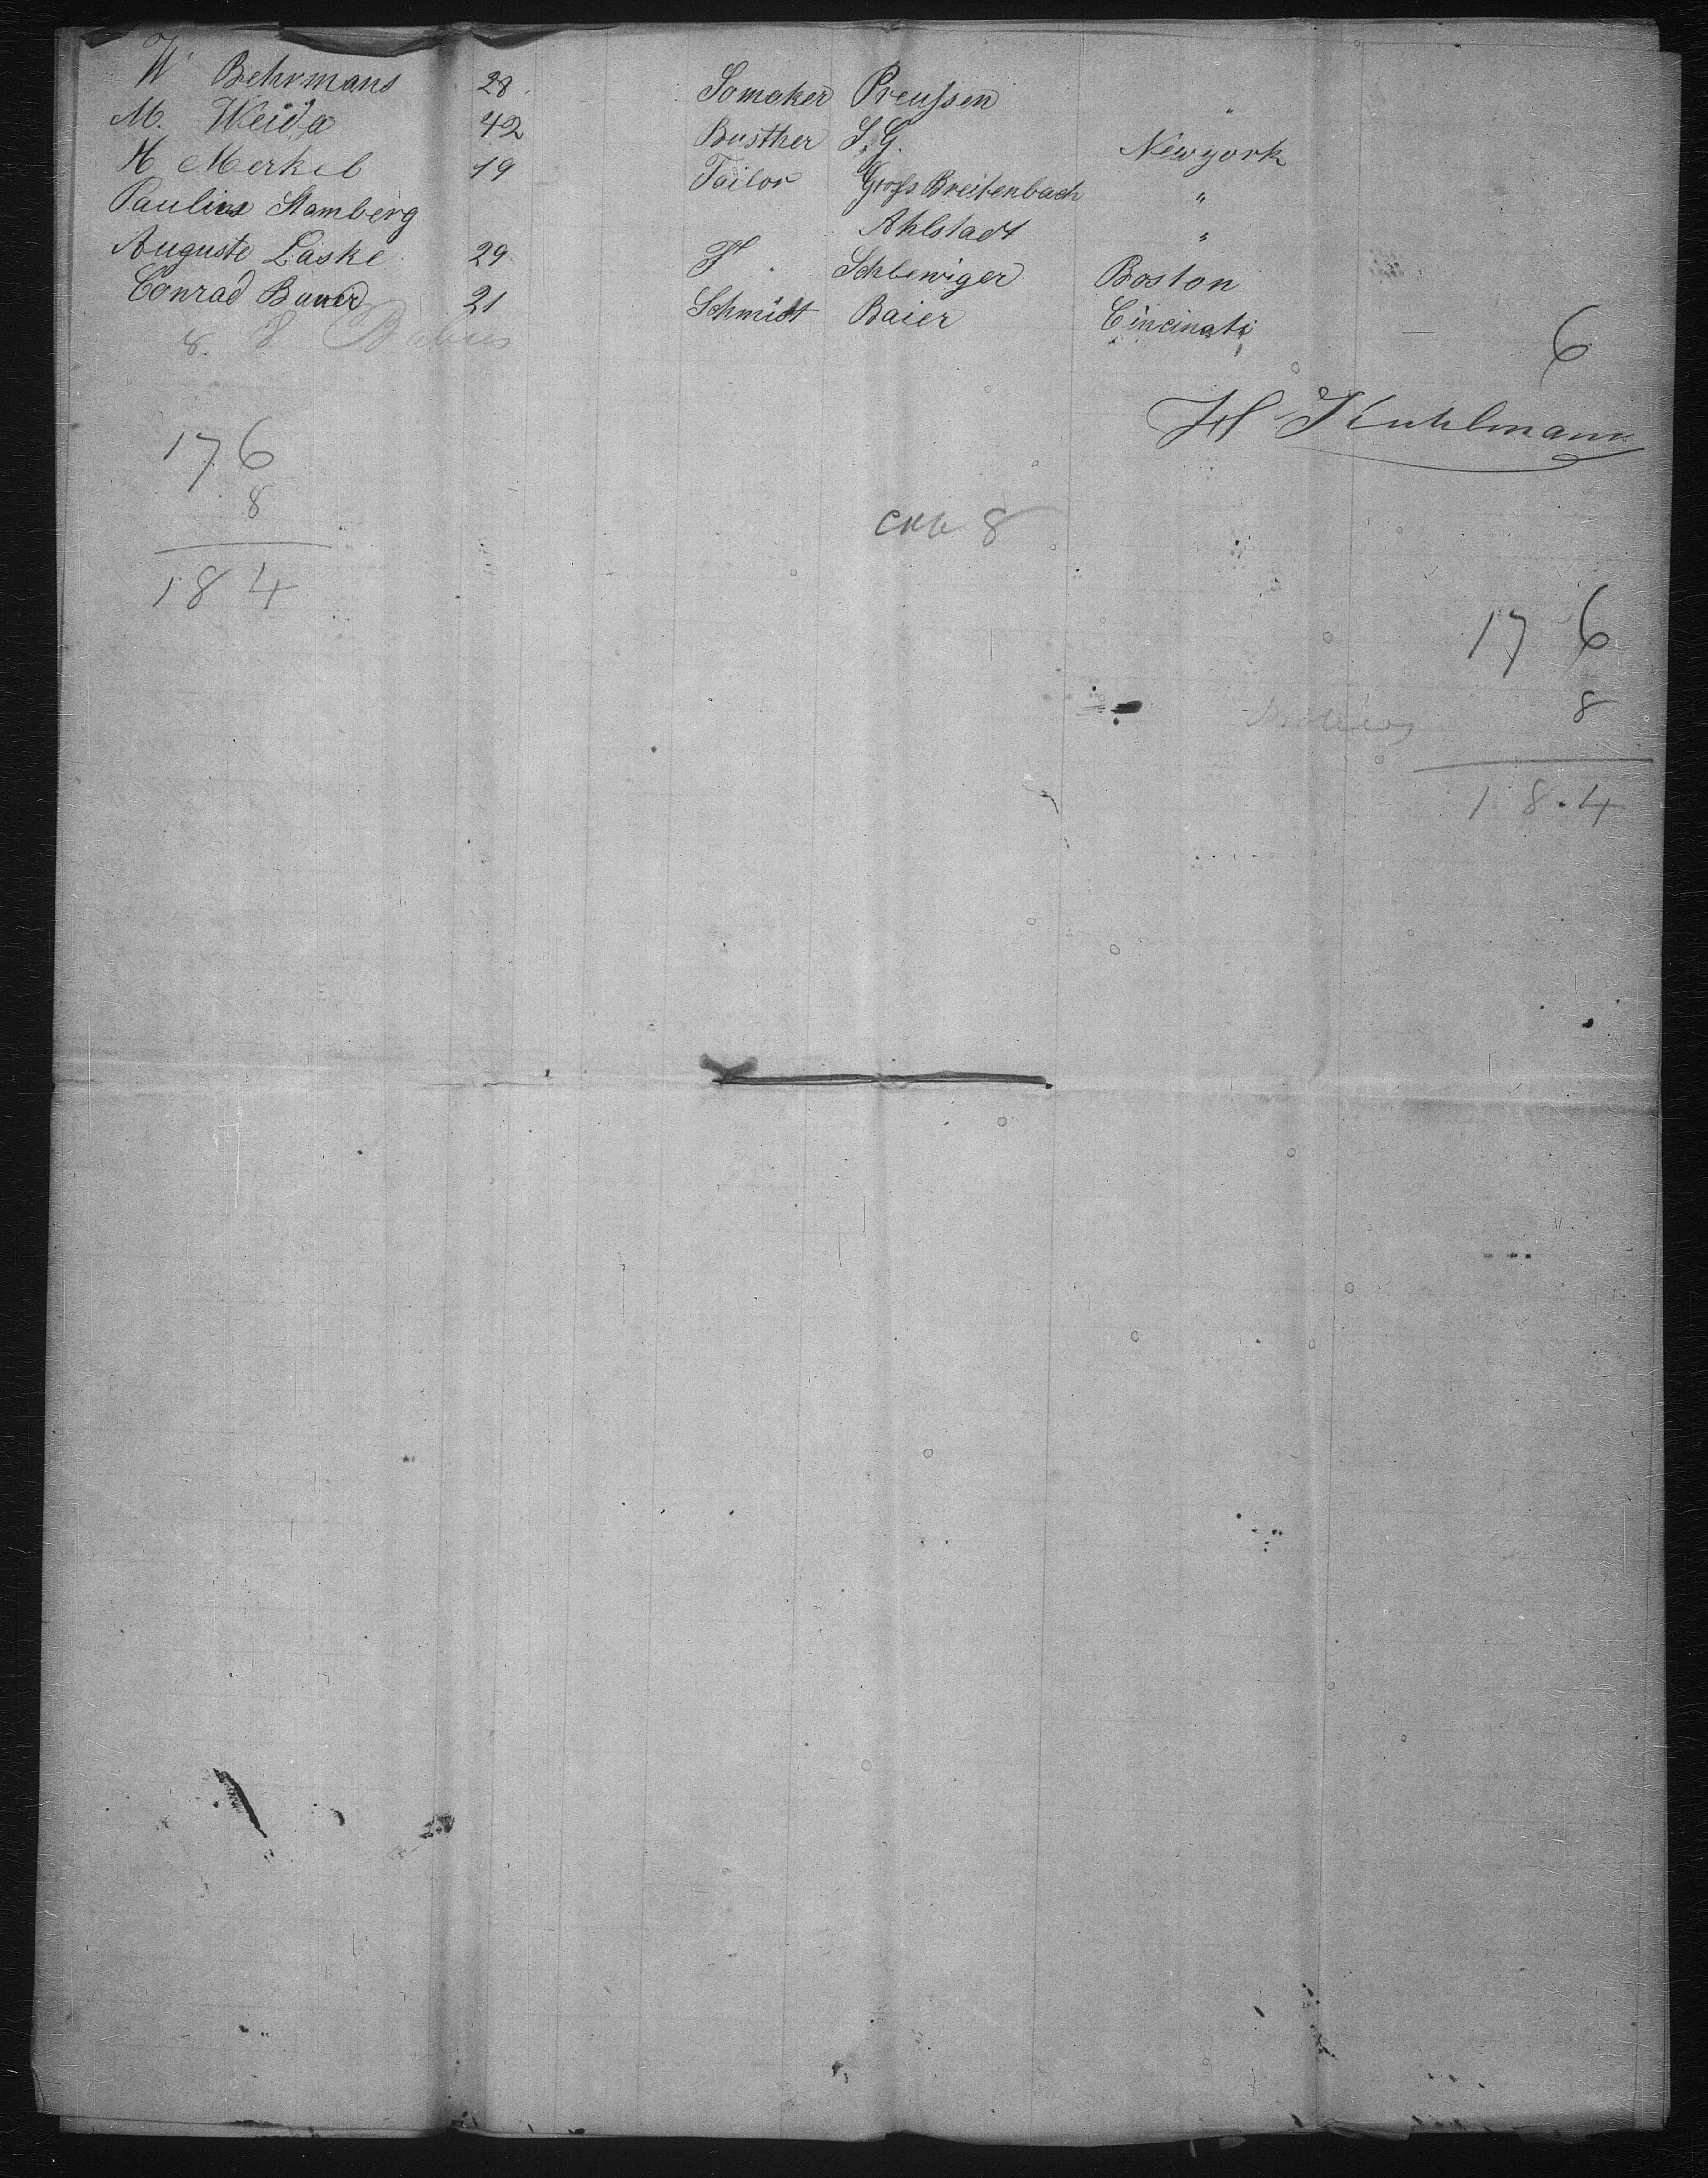 W Behrmans 28 Somaker Preussen "
M. Weida 42 Busther S.G. Newyork
H Merkel 19 Tailor Gross Breitenbach "
Pauline Stamberg Ahlstadt "
Auguste Laske 29 Schlewiger Boston
Conrad Bauer 21 Schmidt Baier Cincinati
8. 8 Babies 6
H Kuhlmann
176
8
184
8
176
8
184